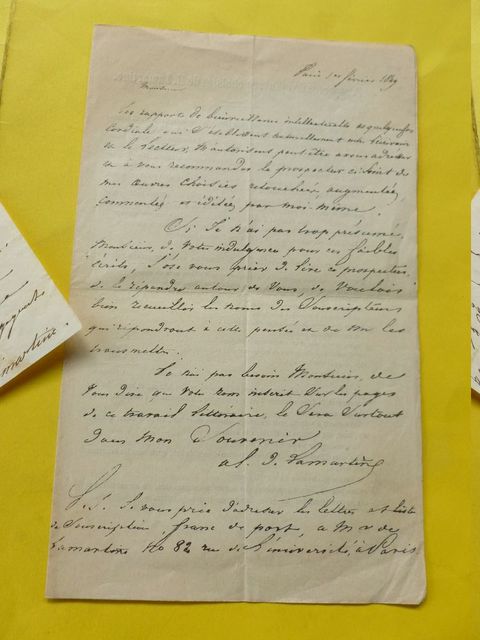 Paris 1er février 1849
Monsieur
Les rapports de bienveillance intellectuelle et quelquefois
cordiale qui s'établissent naturellement entre écrivain
et le lecteur, m'autorisent peut être a vous adresser
et à vous recommander le prospectus ci joint de
mes œuvres choisies retouchées, augmentées,
commentées et éditées par moi-même.
Si je n'ai pas trop présumé,
Monsieur, de votre indulgence pour ces faibles
écrits, j'ose vous prier de lire ce prospectus,
de le répandre autour de vous, de vouloir
bien recueillir les noms des Souscripteurs
qui répondront à cette pensée et de me les
transmettre.
Je n'ai pas besoin Monsieur, de
vous dire que votre nom inscrit sur les pages
de ce travail littéraire, le sera surtout
dans mon Souvenir
al. d. Lamartine
P.S. Je vous prie d'adresser les lettres et liste
de Souscription franc de port, a Mr de
Lamartine No 82 rue de l'université, à Paris
martine